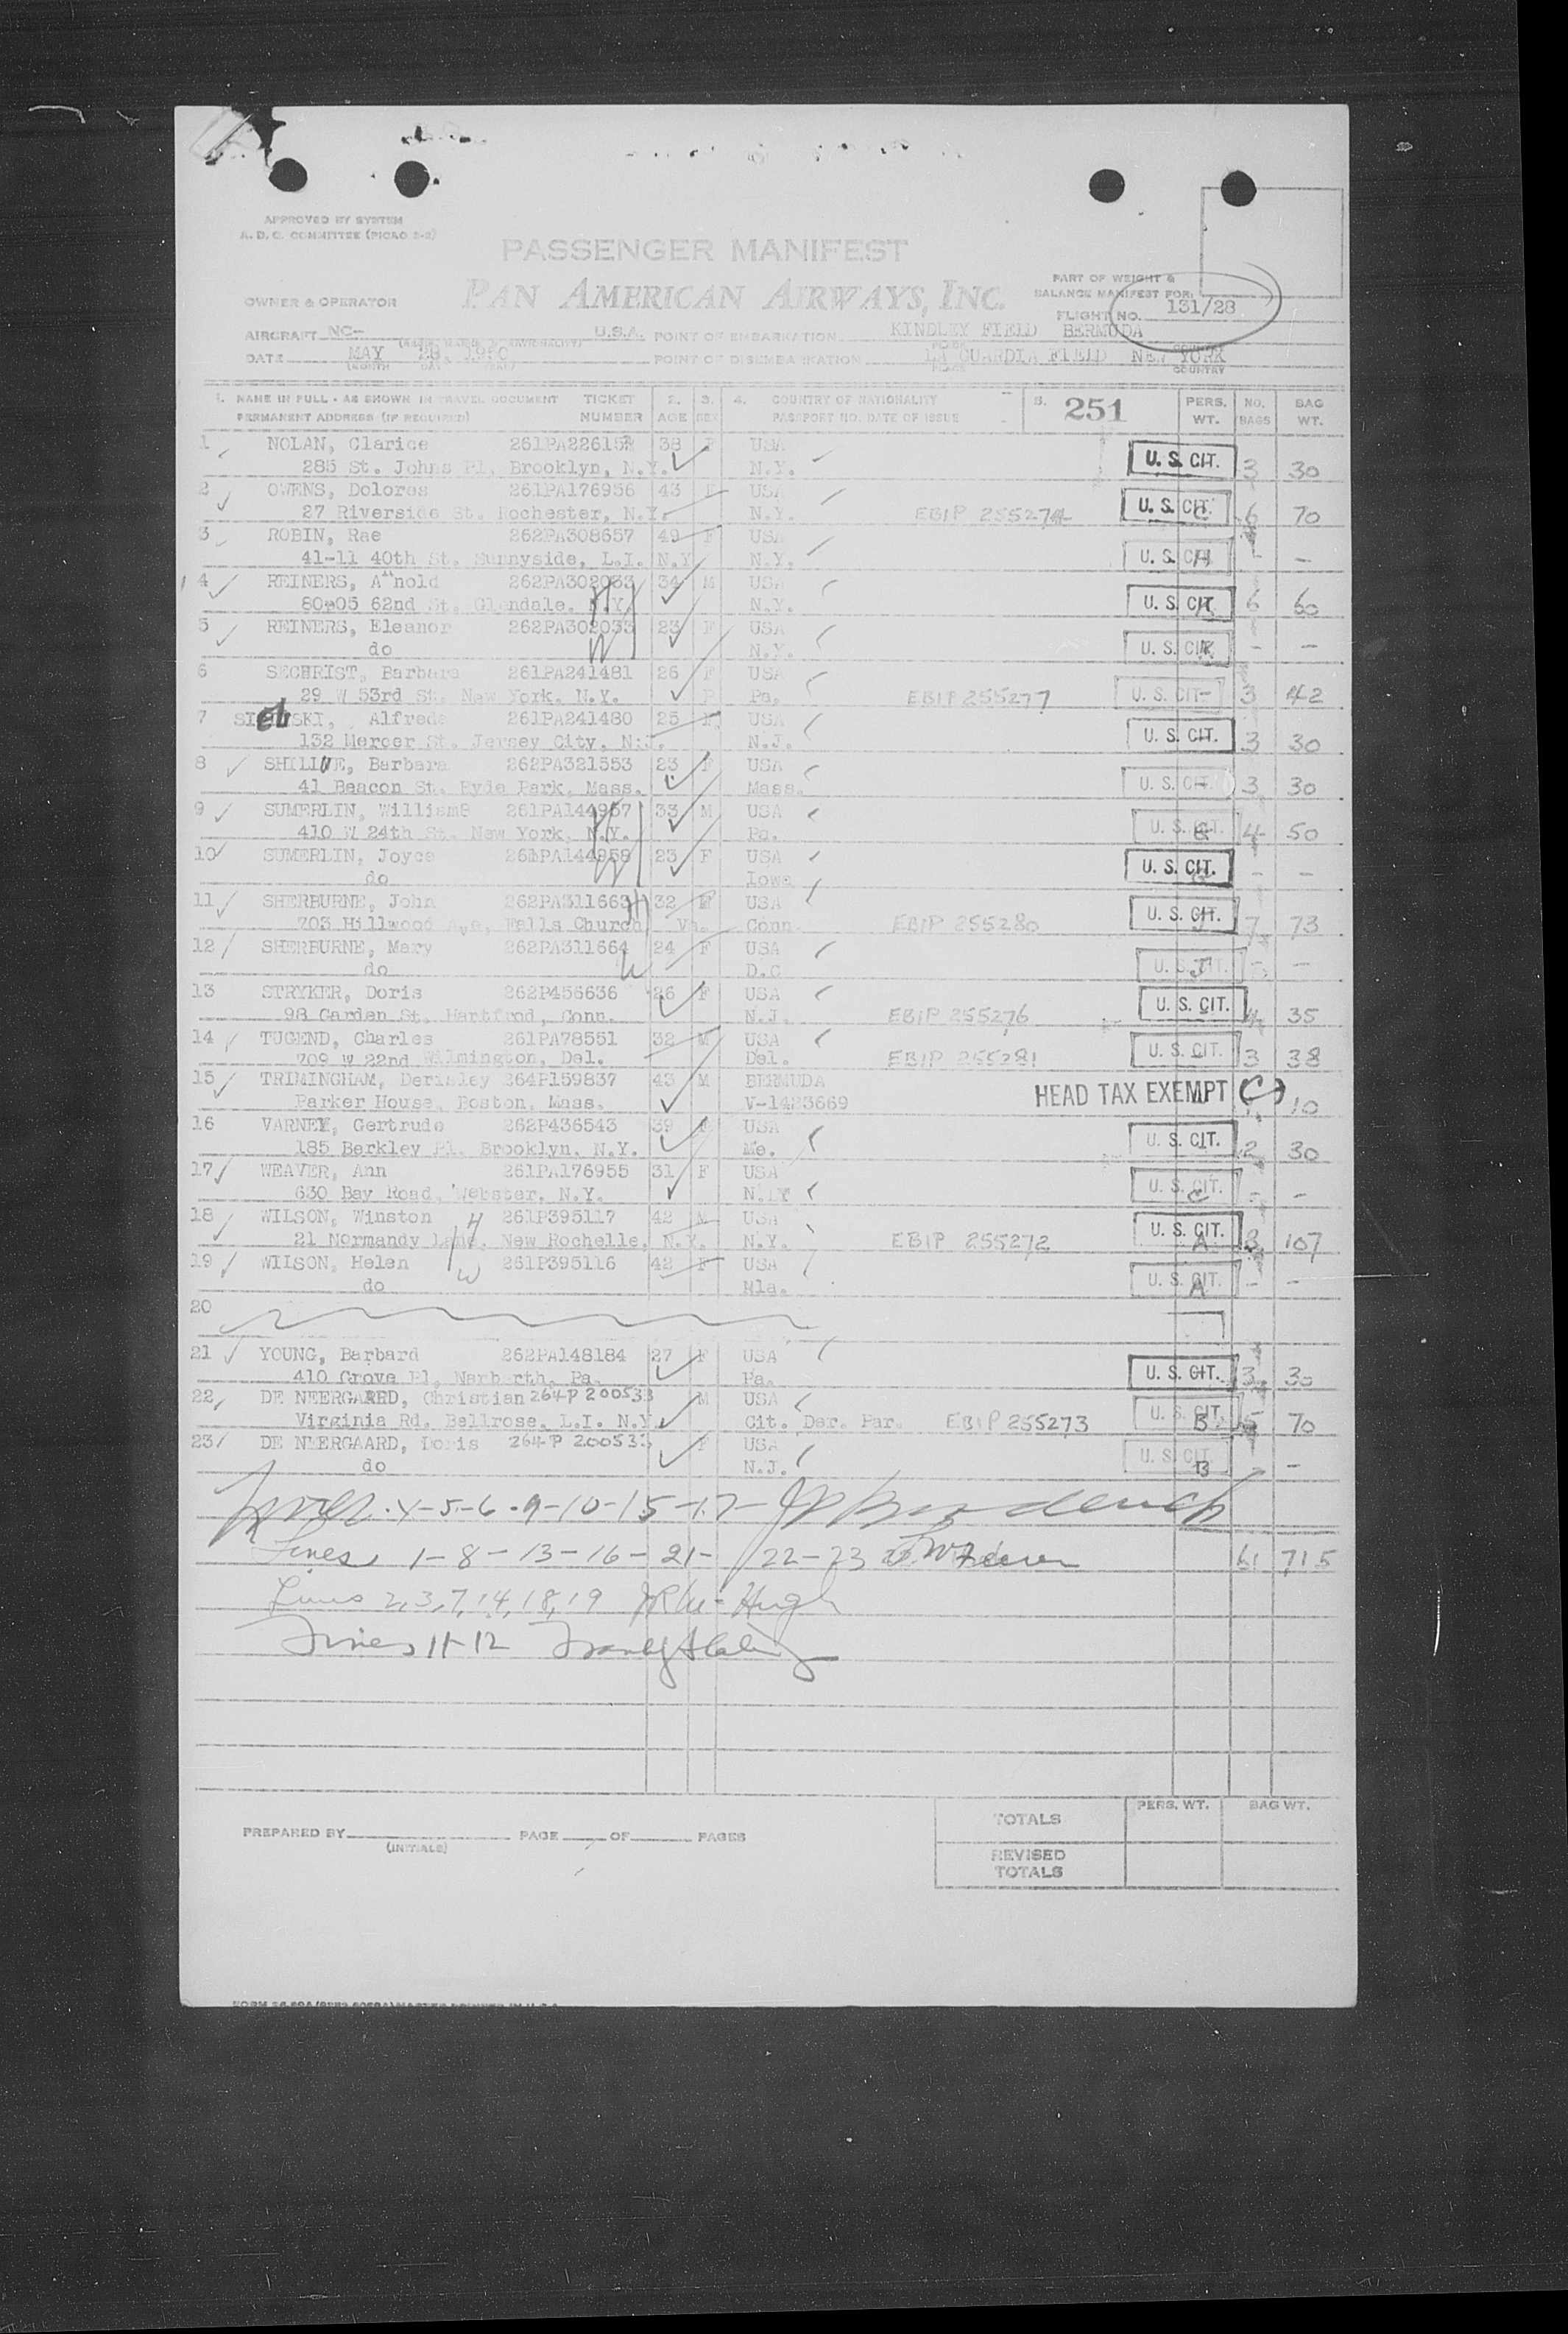 APPROVED BY SYSTEM
A. D. C. COMMITTEE (PICAO 2-2)
PASSENGER MANIFEST
PAN AMERICAN AIRWAYS, INC.
PART OF WEIGHT &
BALANCE MANIFEST FOR
FLIGHT NO. 131/28
OWNER & OPERATOR
AIRCRAFT NC- U.S.A. POINT OF EMBARKATION KINDLEY FIELD BERMUDA
DATE MAY 28, 1950 POINT OF DISEMBARKATION LA GUARDIA FIELD NEW YORK
(MONTH DAY YEAR) COUNTRY
1. NAME IN FULL - AS SHOWN IN TRAVEL DOCUMENT TICKET 2. 3. 4. COUNTRY OF NATIONALITY 5. 251 PERS. NO. BAG
PERMANENT ADDRESS (IF REQUIRED) NUMBER AGE SEX PASSPORT NO. DATE OF ISSUE WT. BAGS WT.
1 NOLAN, Clarice 38 F USA
285 St. Johns Pl. Brooklyn, N.Y. N.Y. U. S. CIT. 3 30
2 OWENS, Dolores 261PA176956 43 F USA
27 Riverside St. Rochester, N.Y. N.Y. EBIP 255274 U. S. CIT. 6 70
3 ROBIN, Rae 262PA308657 49 F USA
41-11 40th St. Sunnyside, L.I. N.Y N.Y. U. S. CIT - -
4 REINERS, Arnold 34 M USA
80-05 62nd St. Glendale. N.Y. N.Y. U. S. CIT 6 60
5 REINERS, Eleanor 262PA302033 23 F USA
do N.Y. U. S. CIT - -
6 SECHRIST, Barbara 261PA241481 26 F USA
29 W 53rd St. New York. N.Y. Pa. EBIP 255277 U. S. CIT 3 42
7 SIEBSKI, Alfreda 261PA241480 25 F USA
132 Mercer St. Jersey City. N.J. N.J. U. S. CIT. 3 30
8 SHILLUE, Barbara 262PA321553 23 F USA
41 Beacon St. Hyde Park, Mass. Mass. U. S. CIT 3 30
9 SUMERLIN, William 261PA144957 33 M USA
410 W 24th St. New York, N.Y. Pa. U. S. CIT. 4 50
10 SUMERLIN, Joyce 261PA144958 23 F USA
do Iowa U. S. CIT. - -
11 SHERBURNE, John 262PA311663 H 32 M USA
703 Hillwood Ave, Falls Church Va. Conn. EBIP 255280 U. S. CIT. 7 73
12 SHERBURNE, Mary 262PA311664 W 24 F USA
do D.C U. S. CIT. - -
13 STRYKER, Doris 262P456636 26 F USA
98 Garden St. Hartfrod, Conn. N.J. EBIP 255276 U. S. CIT. 4 35
14 TUGEND, Charles 261PA78551 32 M USA
709 W 22nd Wilmington, Del. Del. EBIP 255281 U. S. CIT. 3 38
15 TRIMINGHAM, Derisley 264P159837 43 M BERMUDA
Parker House, Boston, Mass. V-1423669 HEAD TAX EXEMPT 10
16 VARNEY, Gertrude 262P436543 39 F USA
185 Berkley Pl. Brooklyn. N.Y. Me. U. S. CIT. 2 30
17 WEAVER, Ann 261PA176955 31 F USA
630 Bay Road, Webster, N.Y. N.Y U. S. CIT. - -
18 WILSON, Winston H 261P395117 42 M USA
21 Normandy Lane, New Rochelle, N.Y. N.Y. EBIP 255272 U. S. CIT. 107
19 WILSON, Helen W 261P395116 42 F USA
do U. S. CIT. - -
20
21 YOUNG, Barbard 262PA148184 27 F USA
410 Grove Pl, Narberth, Pa. Pa. U. S. CIT. 3 30
22 DE NEERGAARD, Christian 264P 200533 M USA
Virginia Rd. Bellrose, L.I. N.Y. Cit. Der. Par. EBIP 255273 U. S. CIT. 5 70
23 DE NEERGAARD, Doris 264P 200533 F USA
do N.J. U. S. CIT - -
4-5-6-9-10-15-17-
Lines 1-8-13-16-21- 22-23 61 715
Lines 2,3,7,14,18,19
Lines 11-12
PERS. WT. BAG WT.
TOTALS
PREPARED BY PAGE OF PAGES
(INITIALS)
REVISED
TOTALS